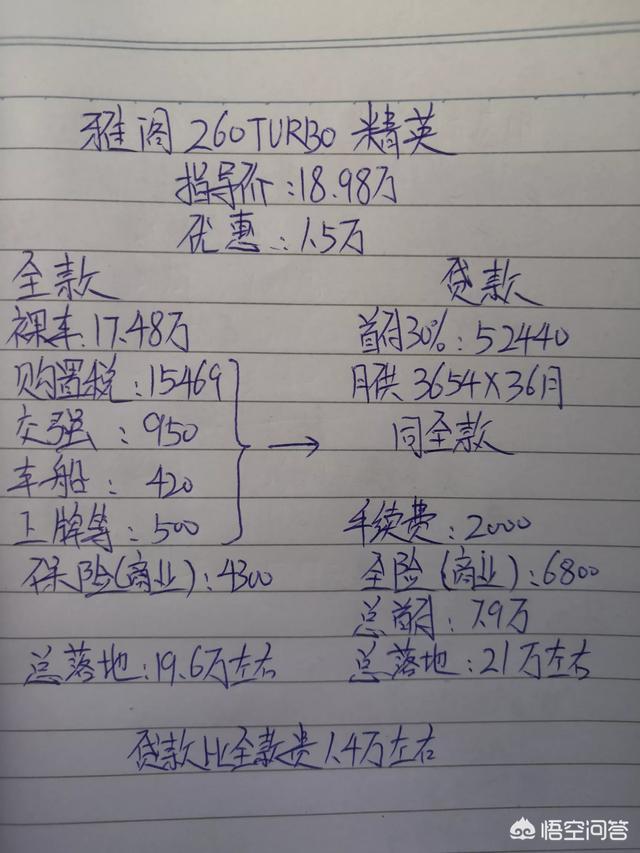 雅阁 260TURBO 精英
指导价:18.98万
优惠:1.5万
全款 贷款
裸车:17.48万 首付30%:52440
购置税:15469 月供 3654×36月
交强:950 同全款
车船:420
上牌等:500 手续费:2000
保险(商业):4300 全险(商业):6800
总首付:7.9万
总落地:19.6万左右 总落地:21万左右
贷款比全款贵1.4万左右
悟空问答